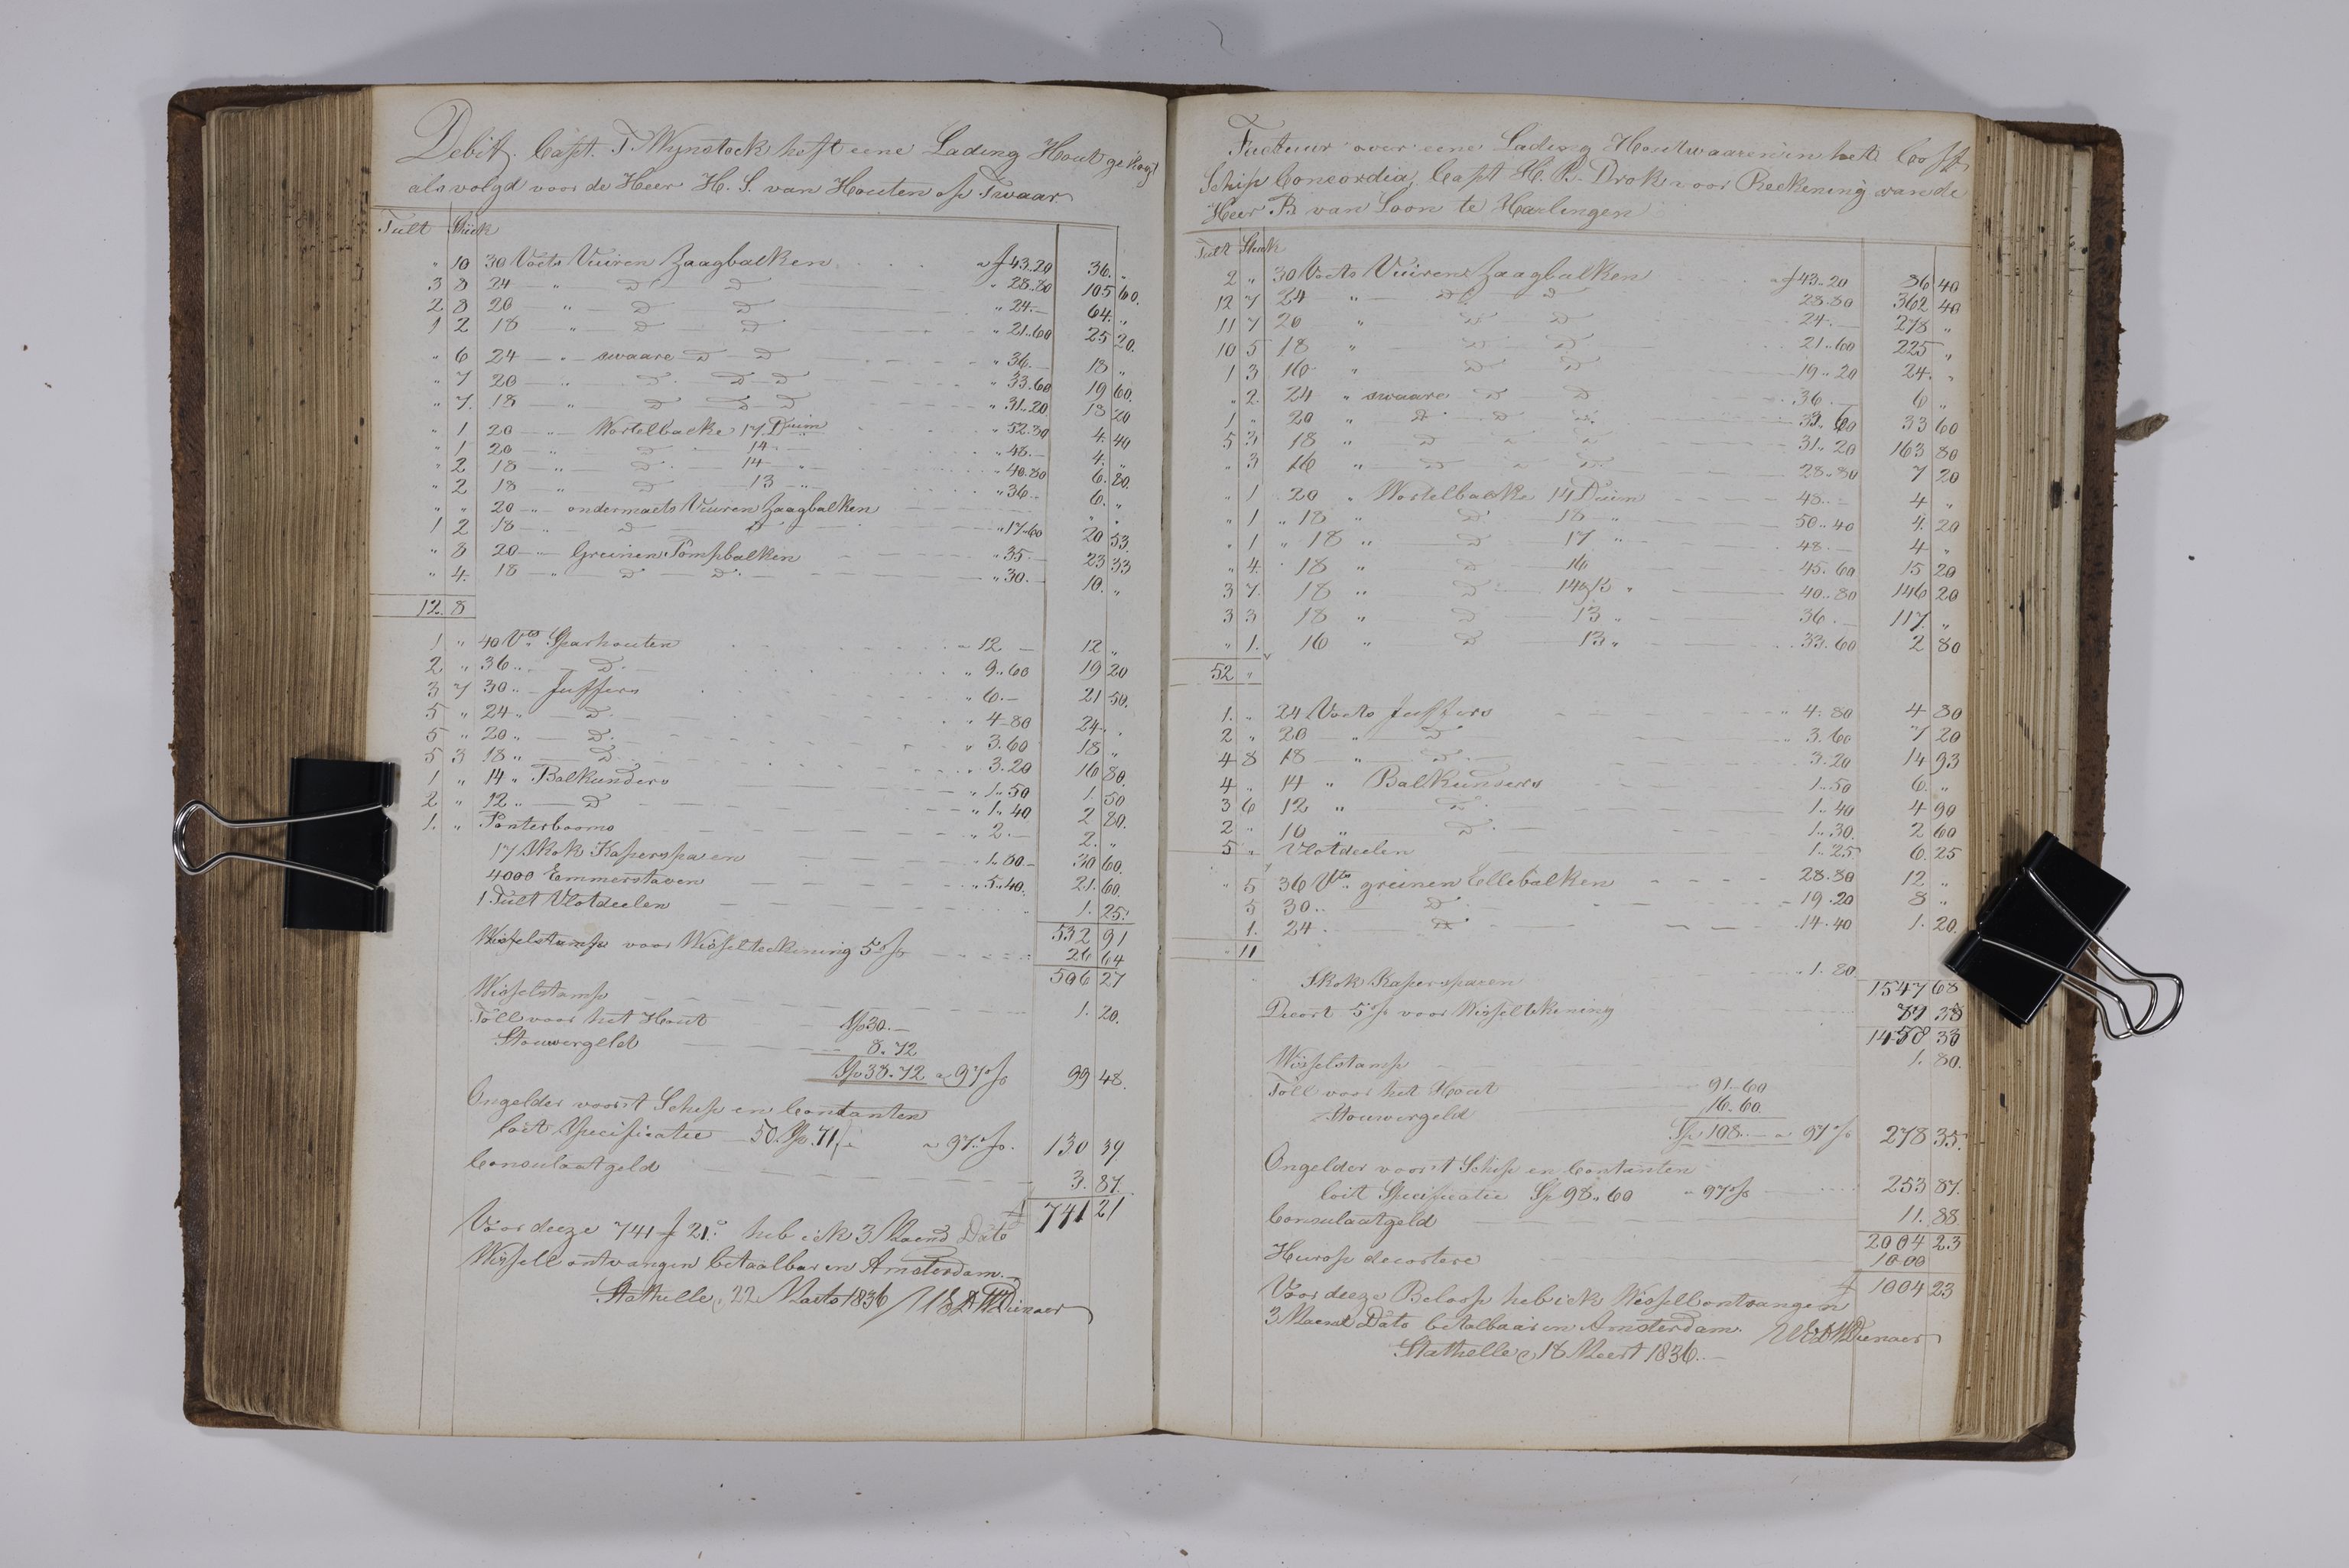 Debit. Capt. T Wynstock heft eene Lading Hout gekogt
als volgd voor de Heer H. S. van Houten op Zwaar
Tult Stück
" 10 30 Voets Vuiren Zaagbalken a f 43.20 36. "
3 8 24 " D D " 28.80 105 60.
2 8 20 " D D " 24.– 64. "
1 2 18 " D D " 21.60 25 20.
" 6 24 – " – swaare D D " 36.– 18 "
" 7 20 – " D. D D " 33.60 19 60.
" 7. 18 – " D D D " 31..20 18 20
" 1 20 – " – Wortelbacke 17 Duim " 52.80 4. 40
" 1 20 – " D. 14 – " " 48.– 4. "
" 2 18 – " D. 14 – " " 40.80 6. 80.
" 2 18 – " D 13 – " " 36.. 6. "
" " 20 – " – ondermaets Vuuren Zaagbalken " "
1 2 18 – " D D " 17.60 20 53.
" 8 20 – " – Greinen Pompbalken " 35.– 23 33
" 4. 18 – " D – D. " 30. 10. "
12. 8
1 " 40 Vts Sparhouten " 12 – 12 "
2 " 36 .. – D. " 9..60 19 20
3 7 30 .. – Juffers " 6.– 21 50.
5 " 24 .. – D. " 4–80 24 . .
5 " 20 .. – D. " 3.60 18 "
5 3 18 .. D. " 3.20 16 80.
1 " 14 " Balkunders " 1..50 1. 50
2 " 12 .. – D " 1..40 2 80.
1. " Ponterbooms " 2.– 2. "
17 Skok Kaperspaeren " 1..80– 30 60.
4000 Emmerstaven " 5..40. 21. 60
1 Tult Vlotdeelen 1. 25.
532 91
voor Wisselteckening 5 % 26 64
506 27
Wisselstamp 1. 20.
Toll voor het Hout Sp 30.–
Stouwergeld 8.72
Sp 38.72 a 97 % 99 48.
Ongelder voor't Schip en Contanten
loit Specificatie – 50. Sp. 71 a 97 %. 130 39.
Consulaatgeld 3. 87.
f 741 21
Voor deeze 741 f 21.c heb ick 3 Maend Dato
Wissell ontvangen betaalbar in Amsterdam.
Stathelle, 22 Maets 1836
Factuur over eene Lading Houtwaaren in het Cofft
Schip Concordia, Capt H. R. Drok voor Reekening van de
Heer B van Loon te Harlingen
Tult Stück
2 " 30 Voets Vuiren Zaagbalken a f 43..20 86 40
12 7 24 " D D 28.80 362 40
11 7 20 " D D 24.– 278 "
10 5 18 " D D 21..60 225 "
1 3 16 " D D 19..20 24. "
" 2. 24 " swaare D D 36.– 6 "
1 " 20 " D. D D. 33..60 33 60
5 3 18 " D " " 31..20 163 80
" 3 16 " D " D. 28..80 7 20
" 1 20 " Wortelbacke 14 Duim 48.– 4 "
" 1 " 18 " D. 18 " 50..40 4. 20
" 1 " 18 " D 17 " 48.– 4 "
" 4. " 18 " D 16 45.60 15 20
3 7. 18 " D 14 " 40..80 146 20
3 3 18 " D 13 " 36.– 117. "
" 1. 16 " D 13 " 33.60 2 80
52 "
1. " 24 Voets Juffers " 4.80 4 80
2 " 20 " D " 3.60 7 20
4 8 18 " D. 3.20 14 93
4 " 14 " Balkunders 1..50 6. "
3 6 12 " D. 1..40 4 90
2 " 10 " D. 1..30. 2 60
5 " Vlotdeelen 1..25 6. 25
" 5 36 Vts greinen Ellebalken 28.80 12 "
5 30 .. D. 19.20 8 "
1. 24. D. 14.40 1. 20.
" 11
Skok Kaperspaeren " 1.80.
1547 68
Decort 5 % voor Wisseltekening
30
Wisselstamp 1. 80.
Toll voor het Hout 91..60
Stouwergeld 16.60.
Sp 108.. – a 97 % 278 35.
Ongelder voor't Schip en Contanten
loit Specificatie Sp 98..60 " 97 % 253 87.
Consulaatgeld 11. 88
2004 23
decortere 1000
f 1004 23
Voor deeze Beloop heb ick Wissell ontvangen
3 Maend Dato betalbaar in Amsterdam.
Stathelle, 18 Meert 1836.–